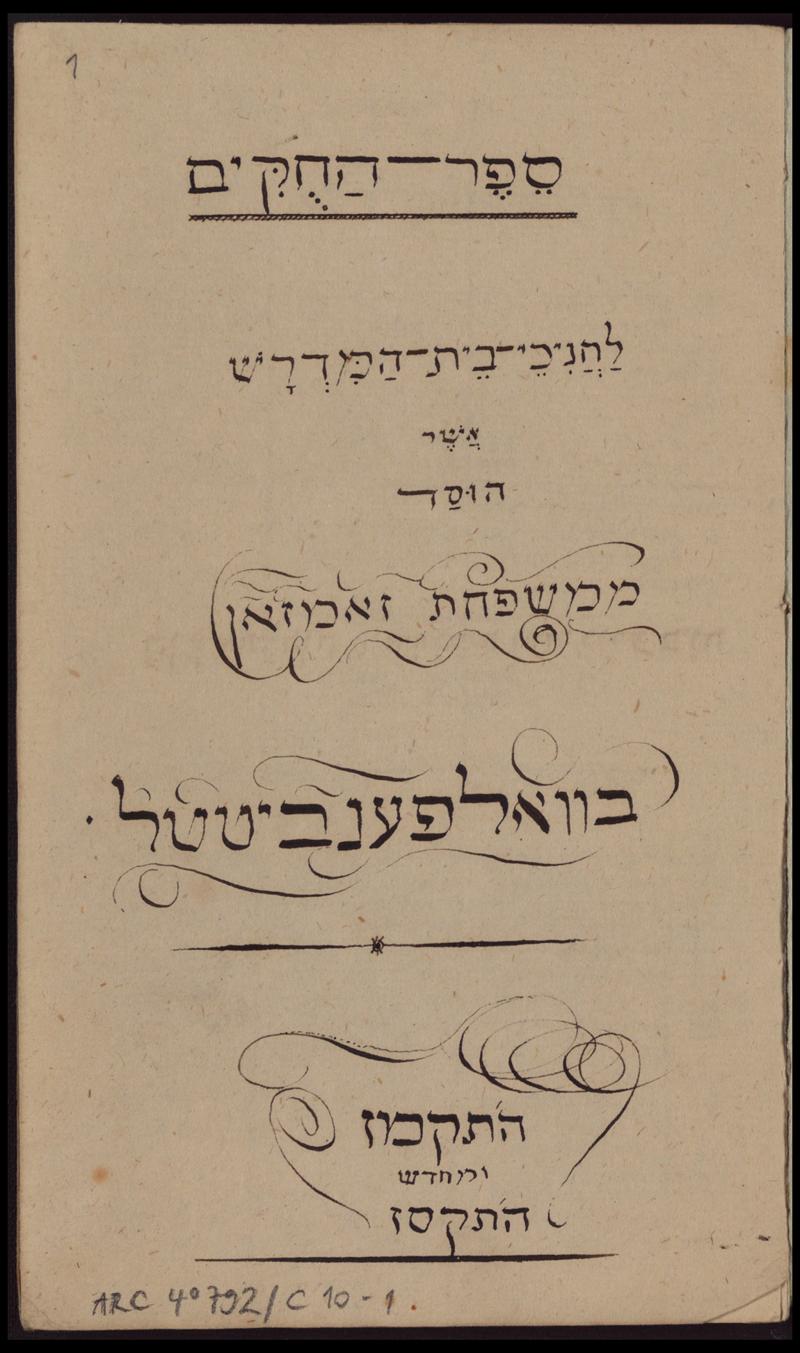 1
סֵפֶר־הַחֻקִּים
לַחֲנִיכֵי־בֵית־הַמִּדְרָשׁ
אֲשֶׁר
הוּסַד
ממשפחת זאמזאן
בוואלפענביטטל .
התקמז
ומחדש
התקסז
ARC 4° 792/C 10-1.